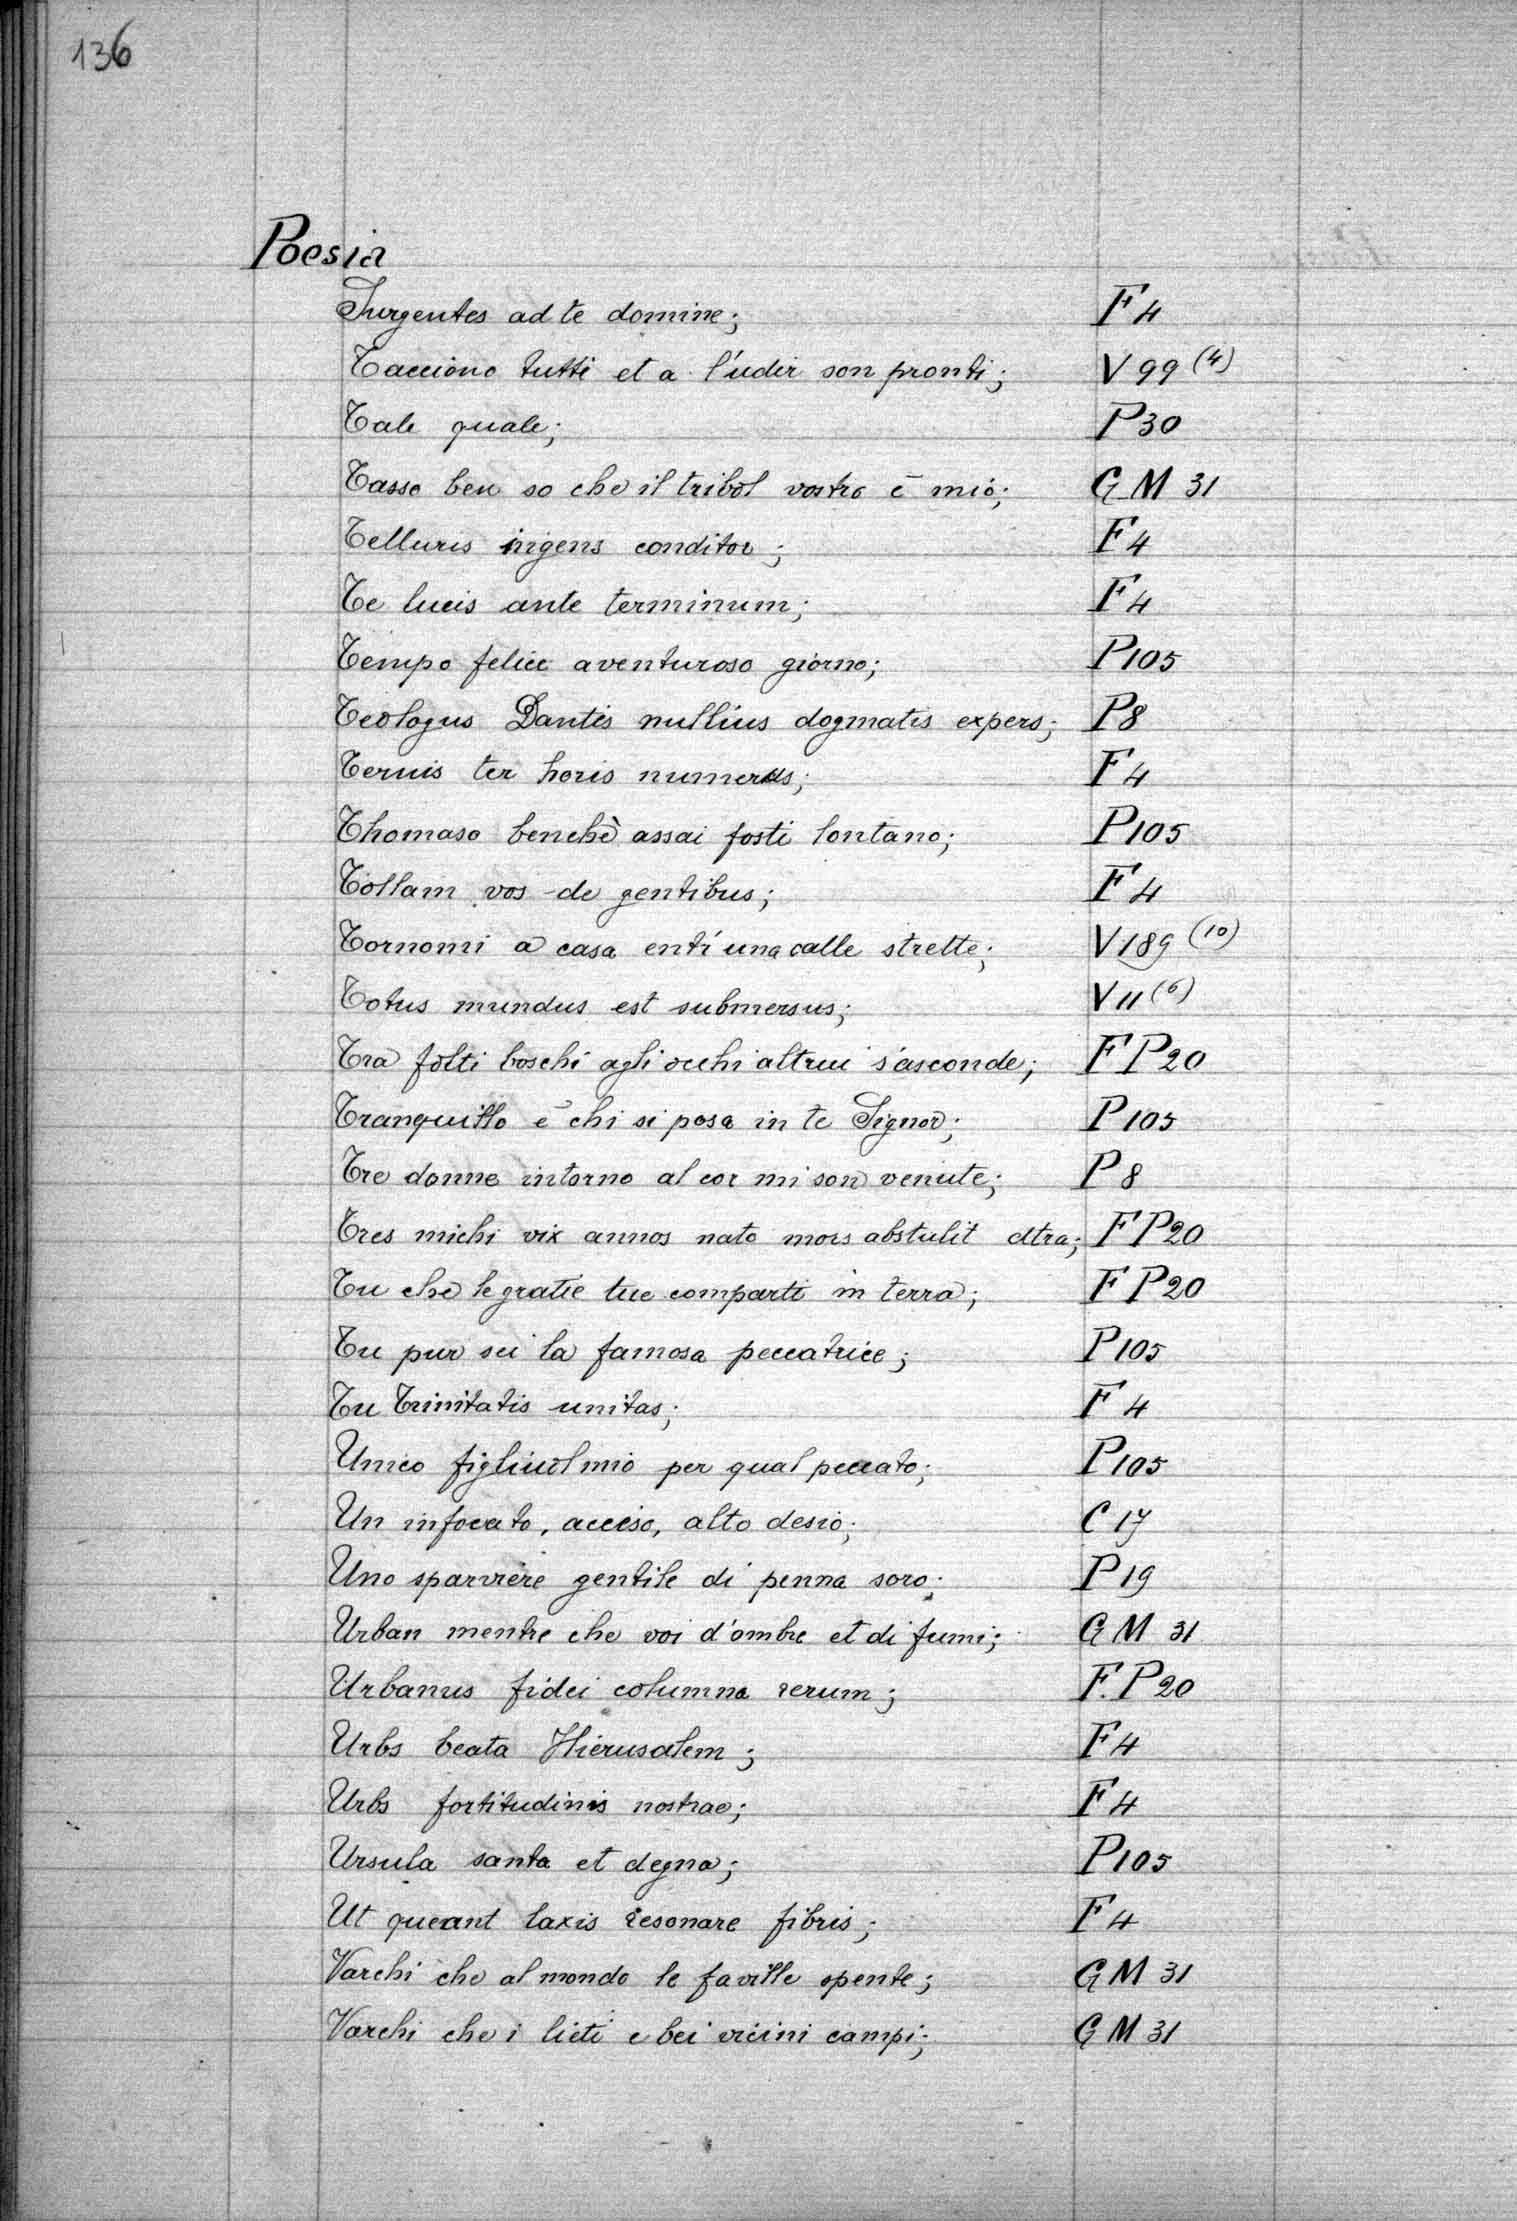 136
Poesia
Surgentes ad te domine; F 4
Tacciono tutti et a l'udir son pronti; V 99 (4)
Tale quale; P 30
Tasso ben so che il tribol vostro è mio; G M 31
Telluris ingens conditor; F 4
Te lucis ante terminum; F 4
Tempo felice aventuroso giorno; P 105
Teologus Dantis nullius dogmatis expers; P 8
Ternis ter horis numerus; F 4
Thomaso benchè assai fosti lontano; P 105
Tollam vos de gentibus; F 4
Tornomi a casa entr'una calle strette; V 189 (10)
Totus mundus est submersus; V 11 (6)
Tra folti boschi agli occhi altrui s'asconde; F P 20
Tranquillo è chi si posa in te Signor; P 105
Tre donne intorno al cor mi son venute; P 8
Tres michi vix annos nato mors abstulit atra; F P 20
Tu che le gratie tue comparti in terra; F P 20
Tu pur sei la famosa peccatrice; P 105
Tu Trinitatis unitas; F 4
Unico figliuol mio per qual peccato; P 105
Un infocato, acceso, alto desio; C 17
Uno sparviere gentile di penna soro; P 19
Urban mentre che voi d'ombre et di fumi; G M 31
Urbanus fidei columna rerum; F. P 20
Urbs beata Hierusalem; F 4
Urbs fortitudinis nostrae; F 4
Ursula santa et degna; P 105
Ut queant laxis resonare fibris; F 4
Varchi che al mondo le faville spente; G M 31
Varchi che i lieti e bei vicini campi; G M 31